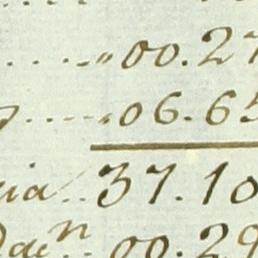 ....." 00.27
..... 06.65
ia.. 37.10
00.29